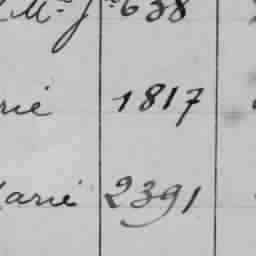 638
rié 1817
arié 2391